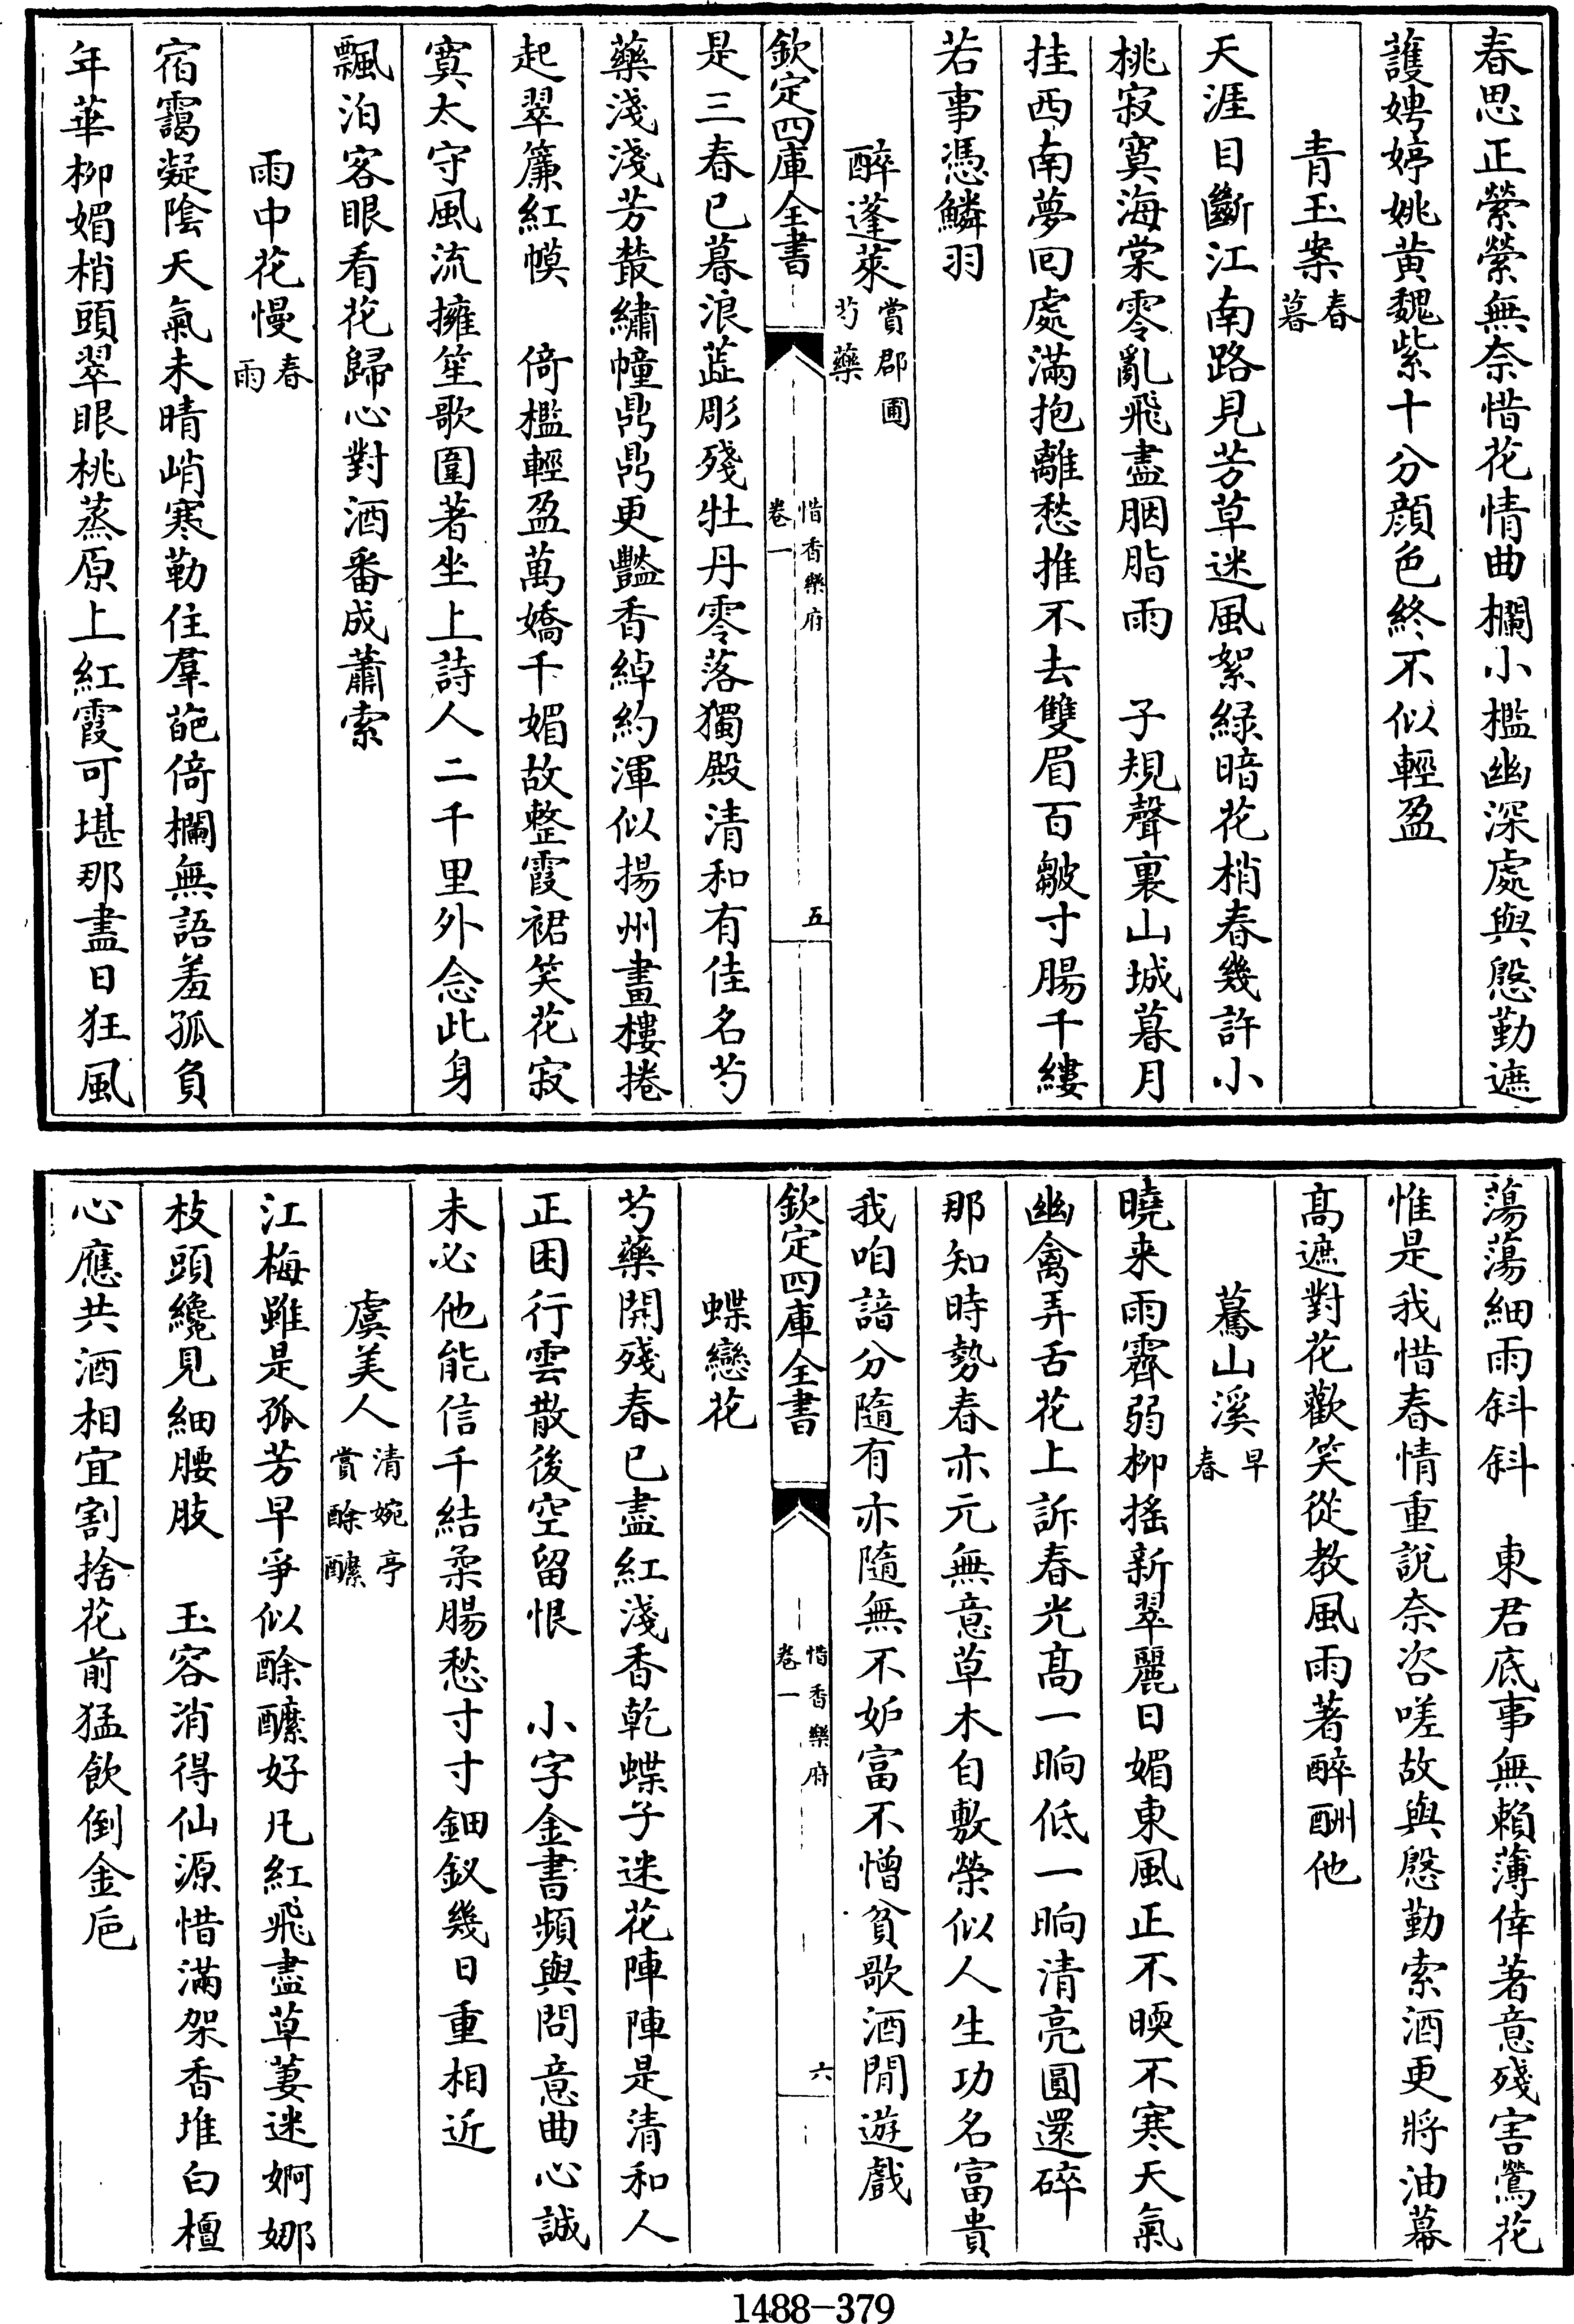 春思正縈縈無奈惜花情曲欄小檻幽深處與慇勤遮
護娉婷姚黄魏紫十分顔色終不似輕盈
青玉案春暮
天涯目斷江南路見芳草迷風絮緑暗花梢春幾許小
桃寂寞海棠零亂飛盡胭脂雨　子規聲裏山城暮月
挂西南夢回處滿抱離愁推不去雙眉百皺寸腸千縷
若事憑鱗羽
醉蓬萊賞郡圃芍藥
欽定四庫全書
惜香樂府
卷一
五
是三春已暮浪蕋彫殘牡丹零落獨殿清和有佳名芍
藥淺淺芳叢繡幢鼎鼎更豔香綽約渾似揚州畫樓捲
起翠簾紅幙　倚檻輕盈萬嬌千媚故整霞裙笑花寂
寞太守風流擁笙歌圍著坐上詩人二千里外念此身
飄泊客眼看花歸心對酒番成蕭索
雨中花慢春雨
宿靄凝陰天氣未晴峭寒勒住羣葩倚欄無語羞孤負
年華柳媚梢頭翠眼桃蒸原上紅霞可堪那盡日狂風
蕩蕩細雨斜斜　東君底事無賴薄倖著意殘害鶯花
惟是我惜春情重說奈咨嗟故與慇勤索酒更將油幕
髙遮對花歡笑從教風雨著醉酬他
驀山溪早春
曉来雨霽弱柳搖新翠麗日媚東風正不暎不寒天氣
幽禽弄舌花上訴春光髙一晌低一晌清亮圓還碎
那知時勢春亦元無意草木自敷榮似人生功名富貴
我咱諳分隨有亦隨無不妒富不憎貧歌酒閒遊戲
欽定四庫全書
惜香樂府
卷一
六
蝶戀花
芍藥開殘春已盡紅淺香乾蝶子迷花陣陣是清和人
正困行雲散後空留恨　小字金書頻與問意曲心誠
未必他能信千結柔腸愁寸寸鈿釵幾日重相近
虞美人清婉亭賞酴醾
江梅雖是孤芳早爭似酴醾好凡紅飛盡草萋迷婀娜
枝頭纔見細腰肢　玉容消得仙源惜滿架香堆白檀
心應共酒相宜割捨花前猛飲倒金巵
1488-379